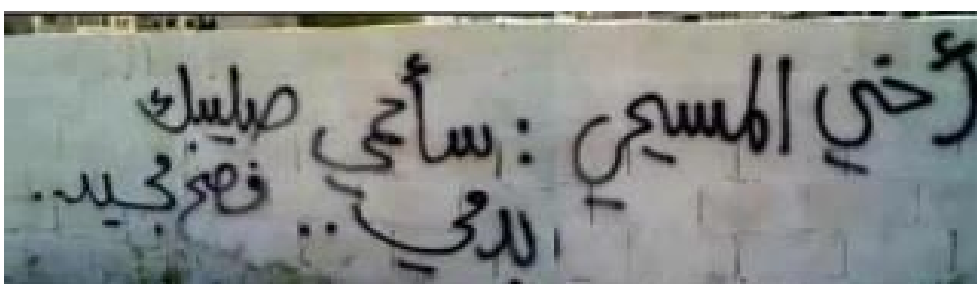 أخي المسيحي : سأحمي صليبك
بدمي .. فصح مجيد .